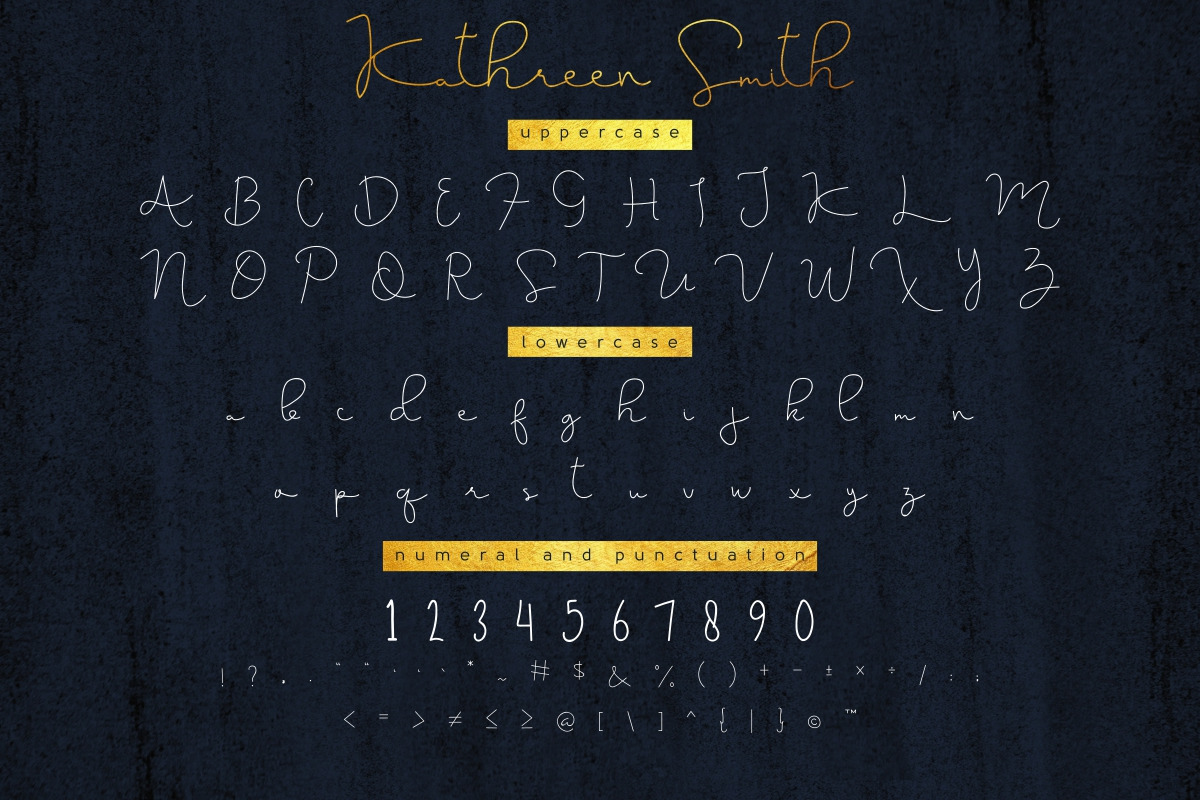 Kathreen Smith
uppercase
A B C D E F G H I J K L M
N O P Q R S T U V W X Y Z
lowercase
a b c d e f g h i j k l m n
o p q r s t u v w x y z
numeral and punctuation
1 2 3 4 5 6 7 8 9 0
! ? . . “ “ ‘ ‘ ` * ~ # $ & % ( ) + − ± × ÷ / : ;
< = > ≠ ≤ ≥ @ [ \ ] ^ { | } © ™